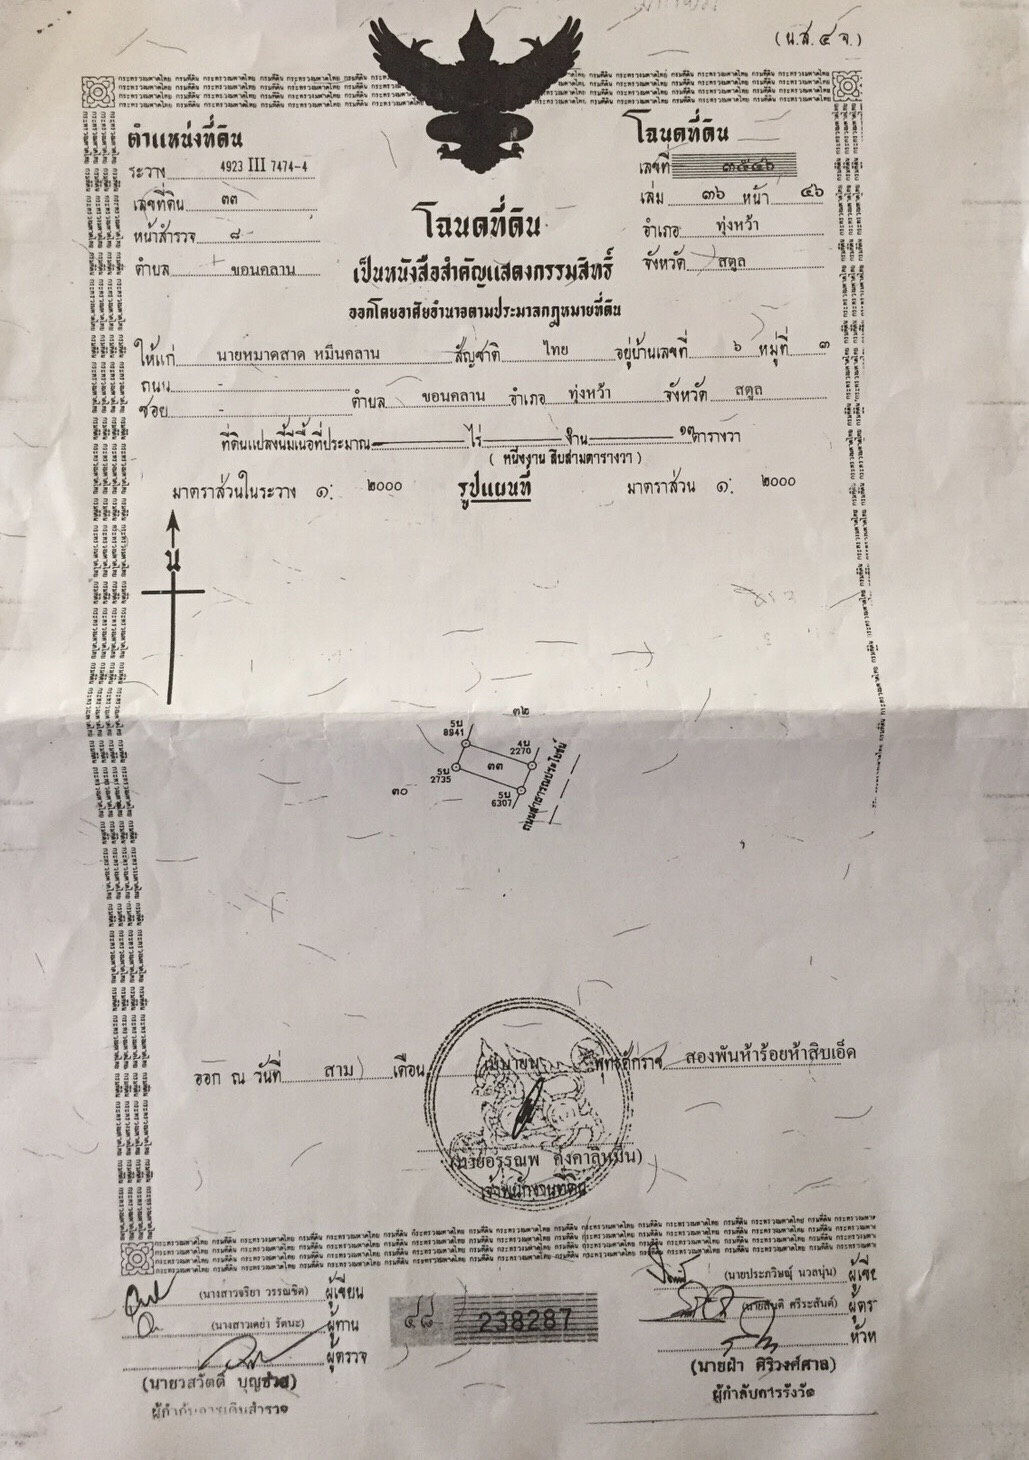 (น.ส. ๔ จ.)
ตำแหน่งที่ดิน
ระวาง 4923 III 7474-4
เลขที่ดิน ๓๓
หน้าสำรวจ ๘
ตำบล ขอนคลาน
โฉนดที่ดิน
เลขที่ ๓๕๔๖
เล่ม ๓๖ หน้า ๔๖
อำเภอ ทุ่งหว้า
จังหวัด สตูล
โฉนดที่ดิน
เป็นหนังสือสำคัญแสดงกรรมสิทธิ์
ออกโดยอาศัยอำนาจตามประมวลกฎหมายที่ดิน
ให้แก่ นายหมาดสาด หมีนคลาน สัญชาติ ไทย อยู่บ้านเลขที่ ๖ หมู่ที่ ๓
ถนน -
ซอย - ตำบล ขอนคลาน อำเภอ ทุ่งหว้า จังหวัด สตูล
ที่ดินแปลงนี้มีเนื้อที่ประมาณ ไร่ งาน ตารางวา
( หนึ่งงาน สิบสามตารางวา )
มาตราส่วนในระวาง ๑: ๒๐๐๐ รูปแผนที่ มาตราส่วน ๑: ๒๐๐๐
น
๓๒
5บ
8941
4บ
2270
๓๓
5บ
2735
๓๐
5บ
6307
ถนนสาธารณประโยชน์
ออก ณ วันที่ สาม เดือน เมษายน พุทธศักราช สองพันห้าร้อยห้าสิบเอ็ด
(นายอรรณพ คงคาลิหมีน)
เจ้าพนักงานที่ดิน
(นางสาวจริยา วรรณชิต) ผู้เขียน
ผู้ทาน
ผู้ตรวจ
(นายวสวัตติ์ บุญช่วย)
ผู้กำกับการเดินสำรวจ
๔๘ 238287
(นายประภวิษณุ์ นวลนุ่น) ผู้เขีย
(นายสันติ ศรีระสันต์) ผู้ตร
หัวห
(นายฝ้า ศิริวงศ์ศาล)
ผู้กำกับการรังวัด